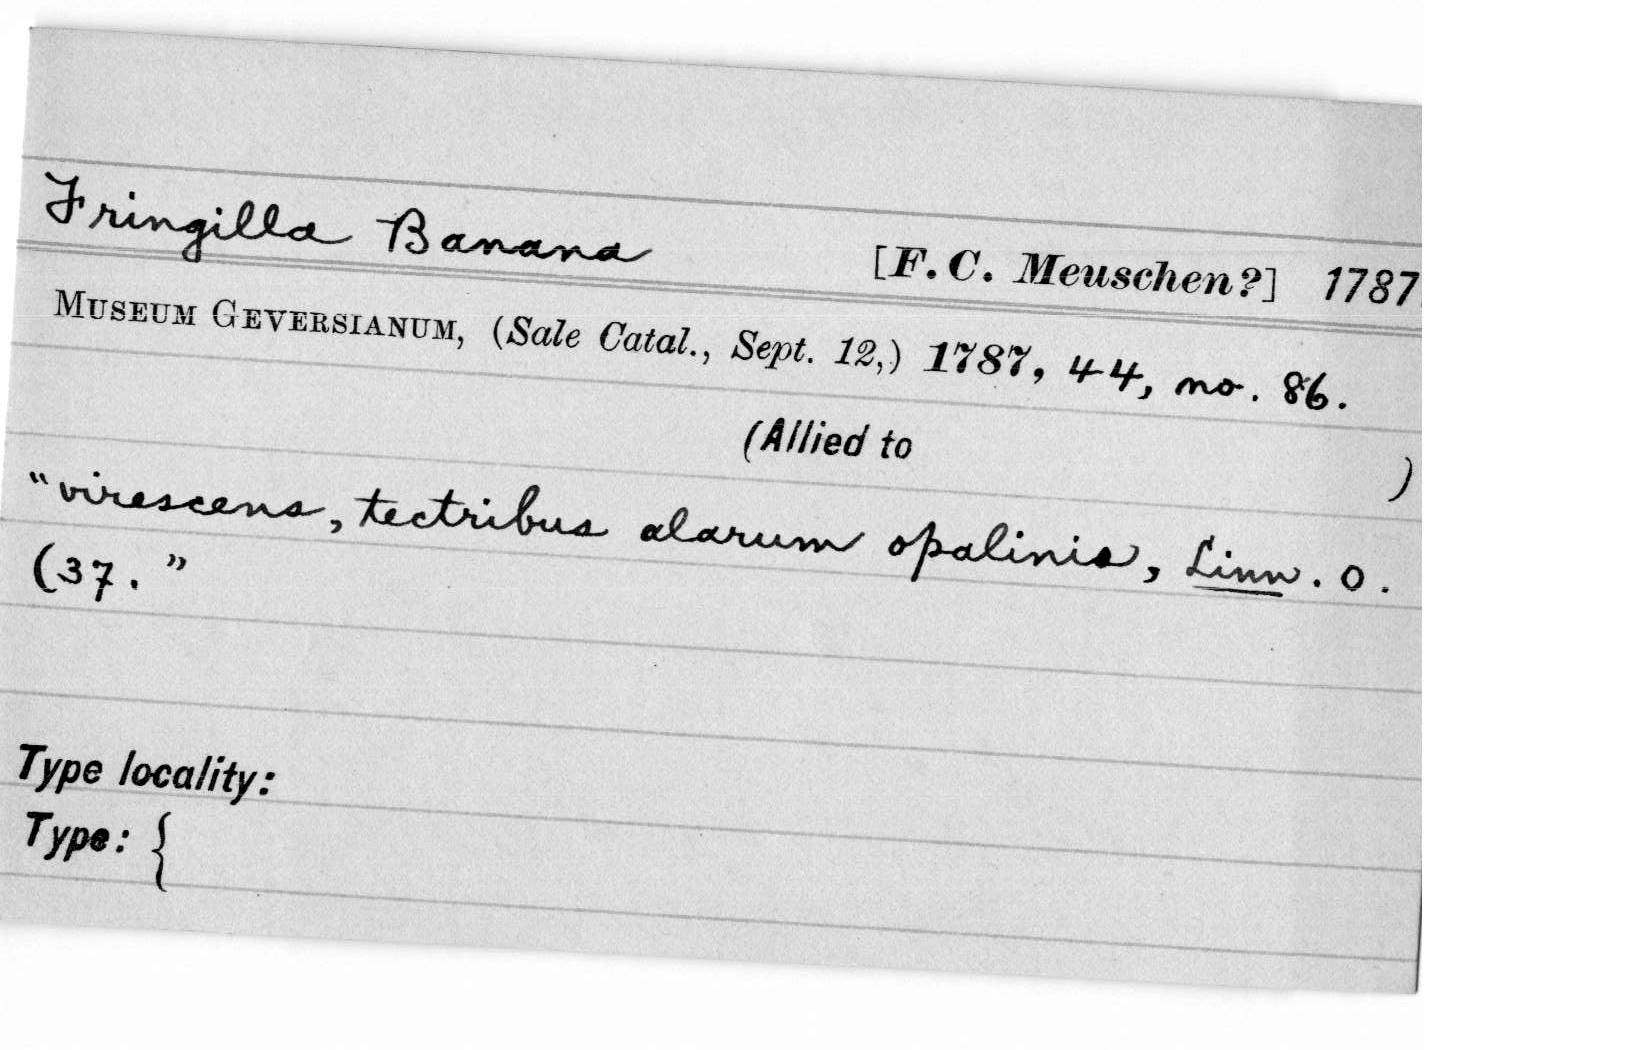 Fringilla Banana [F. C. Meuschen?] 1787
MUSEUM GEVERSIANUM, (Sale Catal., Sept. 12,) 1787, 44, no. 86.
(Allied to )
"virescens, tectribus alarum opalinis, Linn. O.
(37."
Type locality:
Type: {